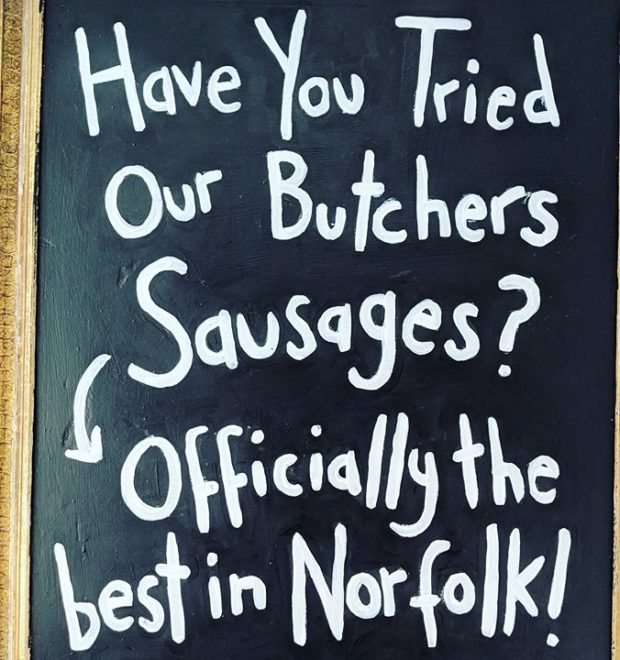 Have You Tried
Our Butchers
Sausages?
Officially the
best in Norfolk!